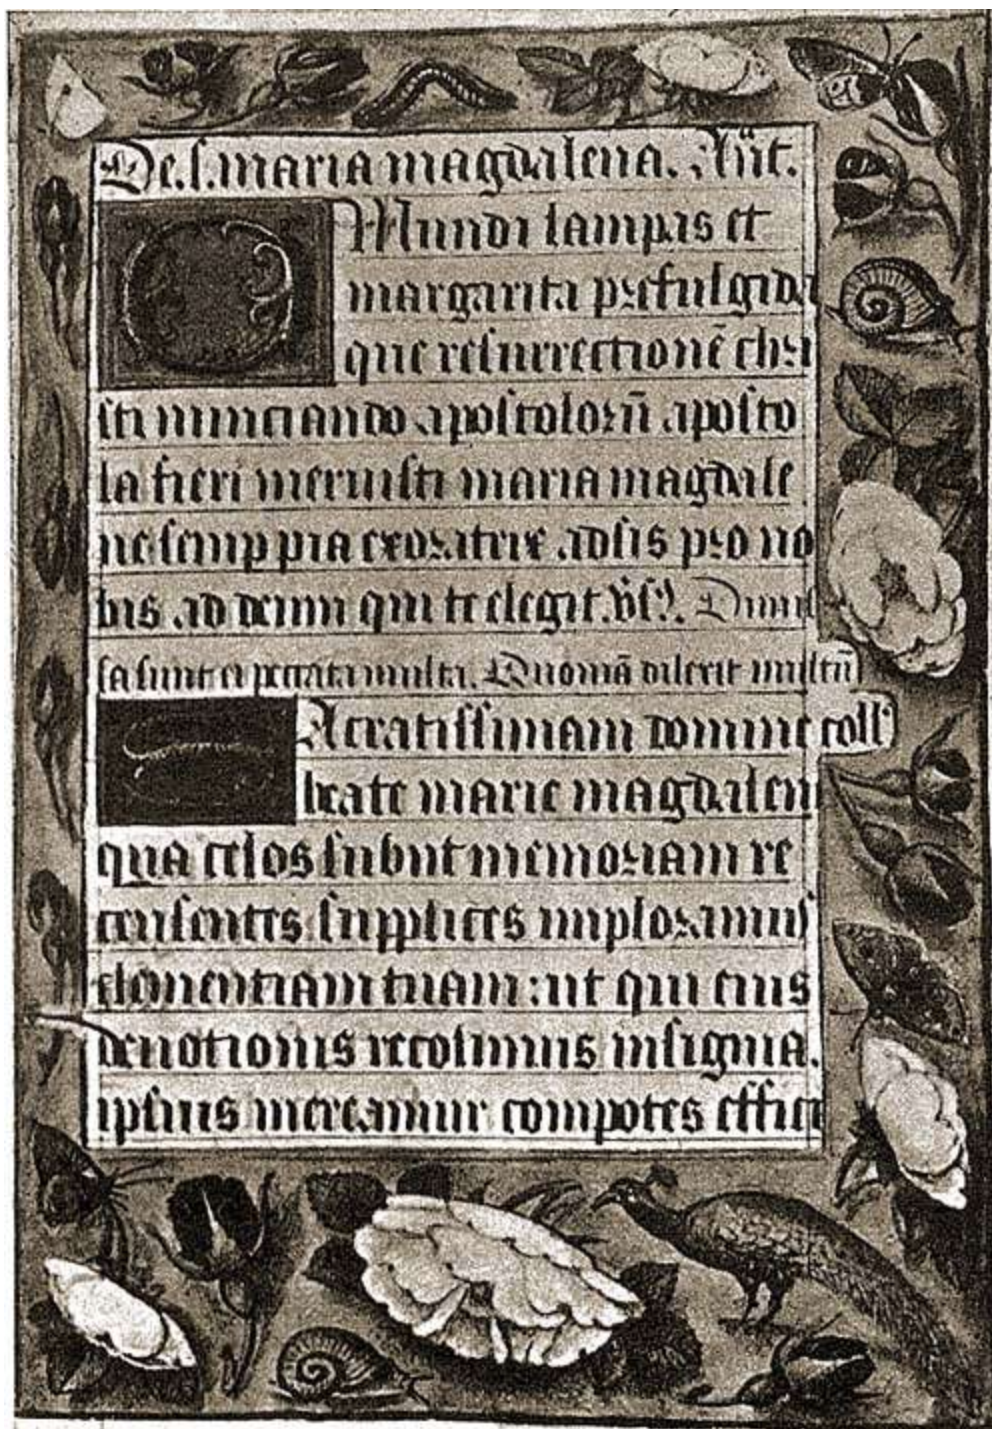 De. s. maria magdalena. Añt.
O Mundi lampas et
margarita prefulgida
que resurrectionē chri
sti nunciando apostoloruū aposto
la fieri meruisti maria magdale
ne semp pia exoratrix adsis pro no
bis ad deum qui te elegit. v̄s. Dimis
sa sunt ei peccata multa. Quoniā dilexit multū
SAcratissimam domine coll'
beate marie magdalen
qua celos subiit memoriam re
censentes supplices imploramus
clementiam tuam: ut qui eius
deuotionis recolimus insignia.
ipsius mereamur compotes effici